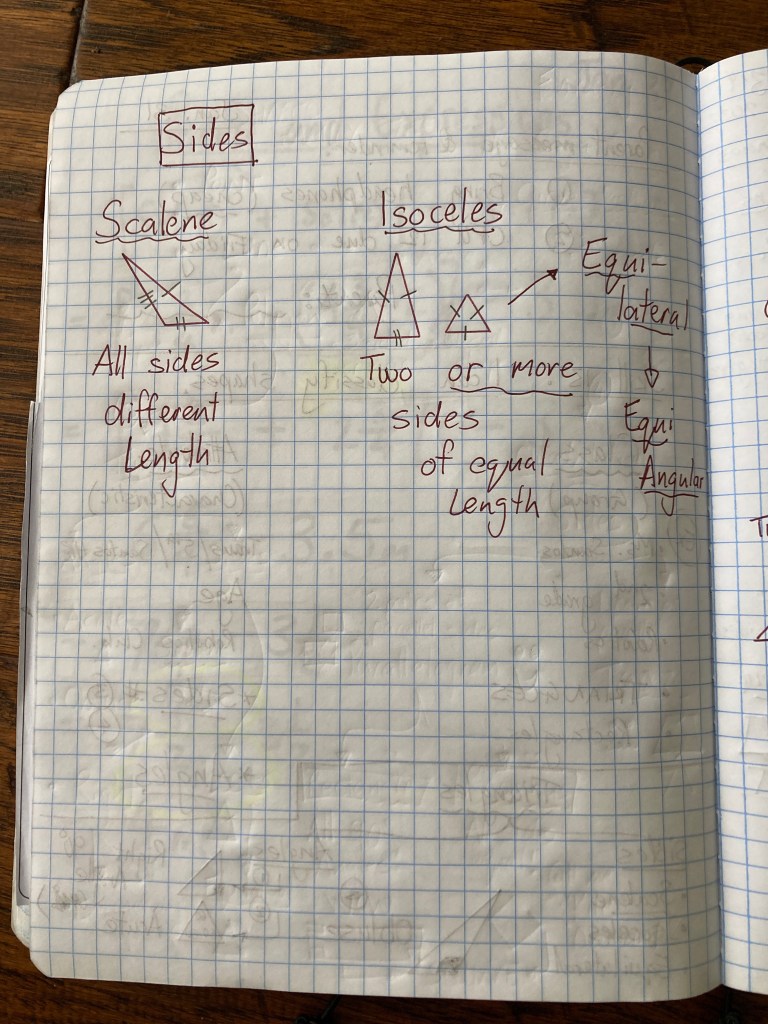 Sides
Scalene
All sides
different
Length
Isoceles
Two or more
sides
of equal
Length
Equi-
lateral
Equi
Angular